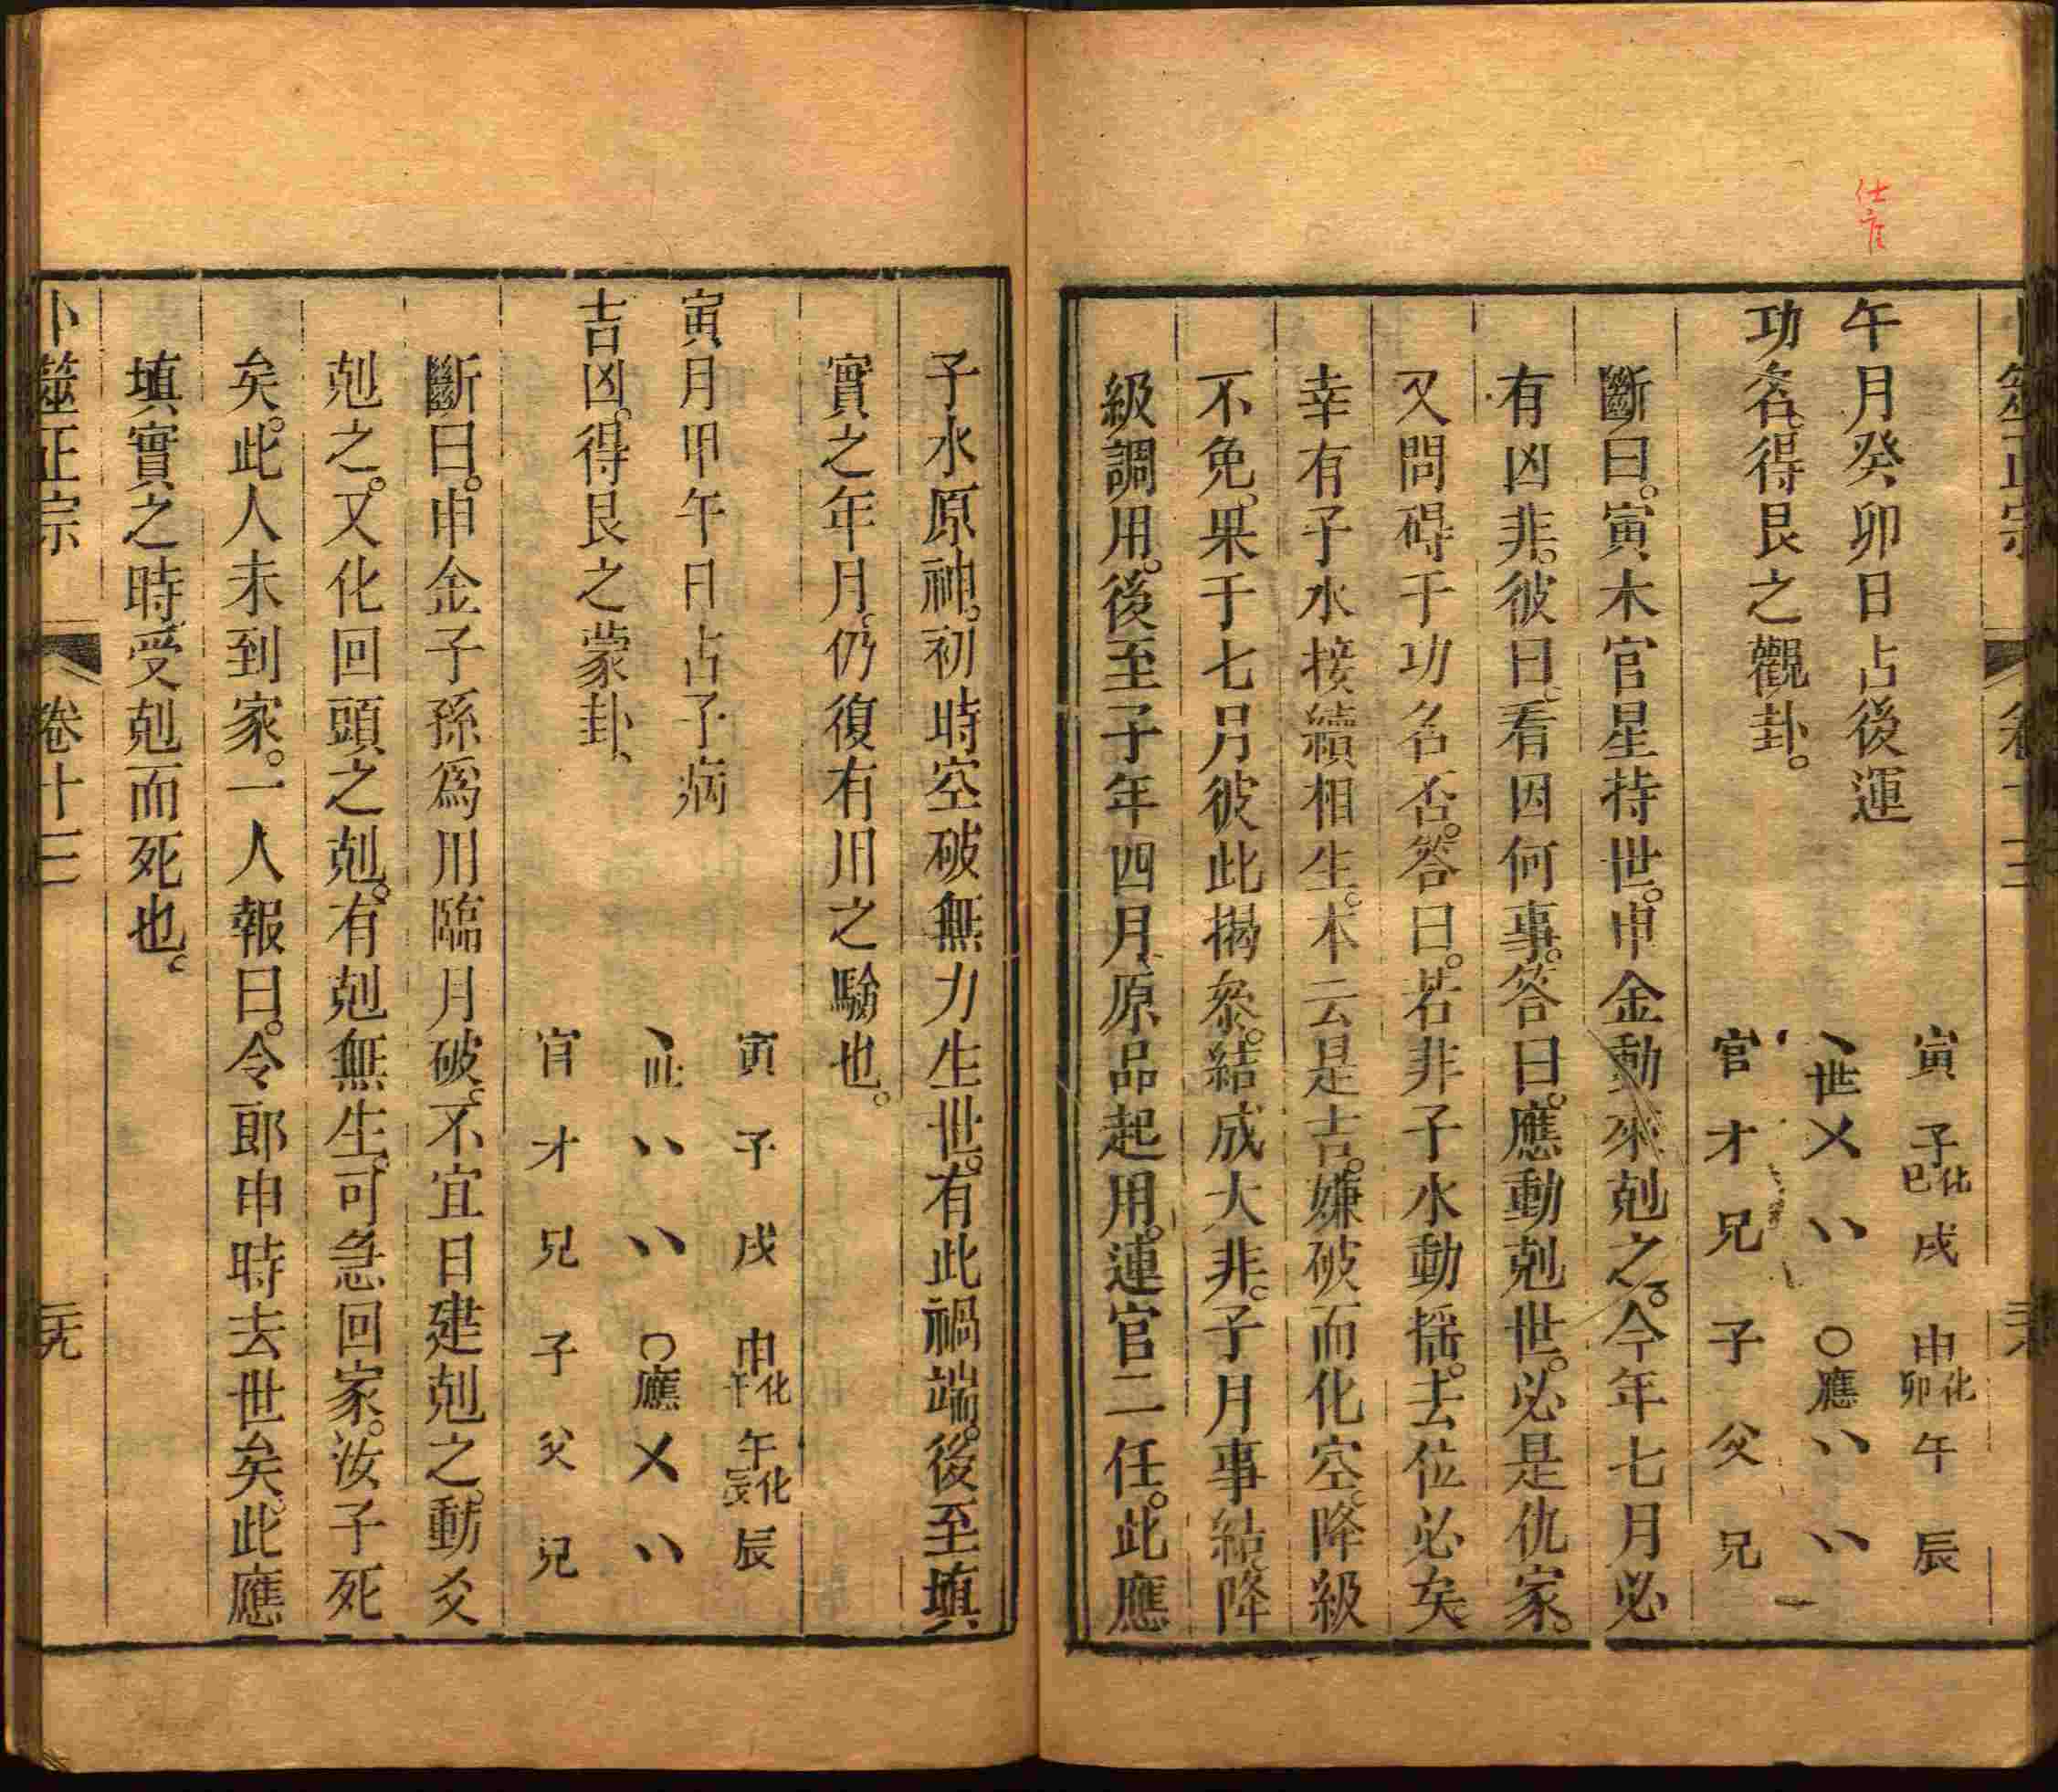 仕官
卜筮正宗 卷十三 三十八
午月癸卯日占後運
功名得艮之觀卦。
寅 子化巳 戌 申化卯 午 辰
、世 乂 八 〇應 八 八
官 才 兄 子 父 兄
斷曰。寅木官星持世。申金動來剋之。今年七月必
有凶非。彼曰、看因何事。答曰。應動剋世。必是仇家。
又問碍于功名否。答曰。若非子水動搖。去位必矣
幸有子水接續相生。本云是吉。嫌破而化空、降級
不免。果于七月彼此揭叅。結成大非。子月事結、降
級調用。後至子年四月、原品起用。連官二任。此應
子水原神。初時空破無力生世。有此禍端。後至填
實之年月、仍復有用之驗也。
寅月甲午日占子病
吉凶。得艮之蒙卦、
寅 子 戌 申化午 午化辰 辰
、世 八 八 〇應 乂 八
官 才 兄 子 父 兄
斷曰。申金子孫爲用臨月破。不宜日建剋之。動爻
剋之。又化回頭之剋。有剋無生。可急回家。汝子死
矣。此人未到家。一人報曰。令郎申時去世矣。此應
填實之時受剋而死也。
卜筮正宗 卷十三 三十九